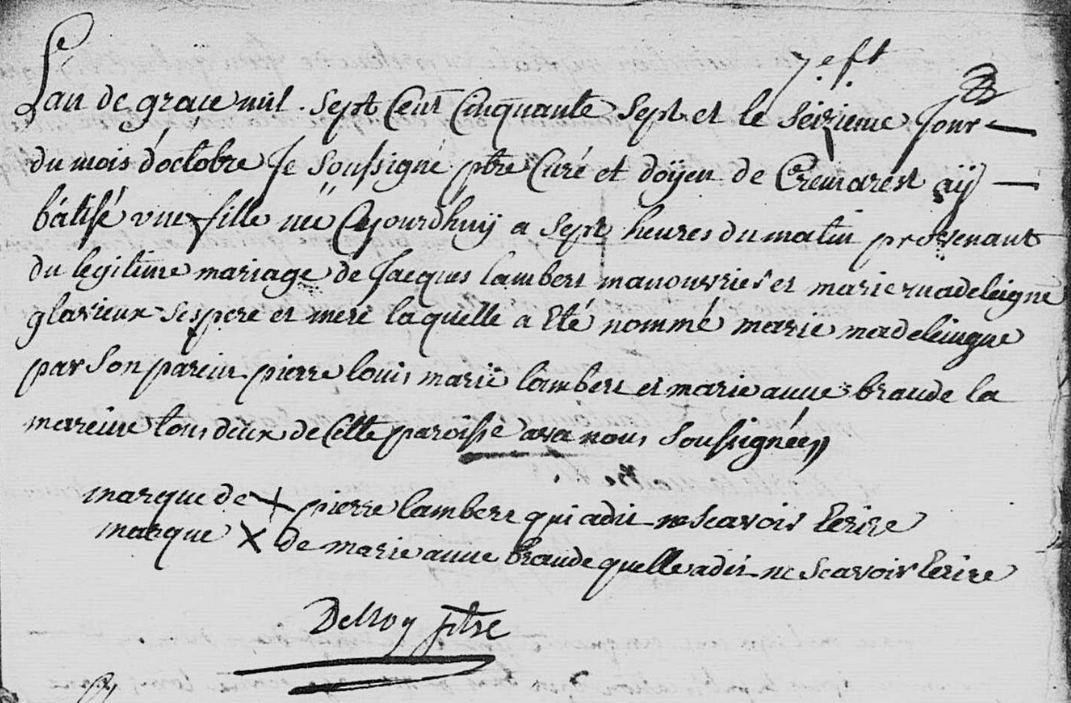 7 e ft
L'an de grace mil sept Cent Cinquante Sept et le Seizieme Jour
du mois d'octobre Je Soussigné ptre Curé et doÿen de Cremarest aÿ
bâtisé une fille née Cejourdhuÿ a Sept heures du matin provenant
du legitime mariage de Jacques lambert manouvrier et marie madeleigne
glavieux Ses pere et mere laquelle a Eté nommé marie madeleingne
par Son parein pierre louis marie lambert et marie anne braude la
mareine tous deux de Cette paroisse avec nous Soussignées
marque de + pierre lambert qui a dit ne scavoir Ecrire
marque X de marie anne braude quelle a dit ne Scavoir Ecrire
Delroy ptre